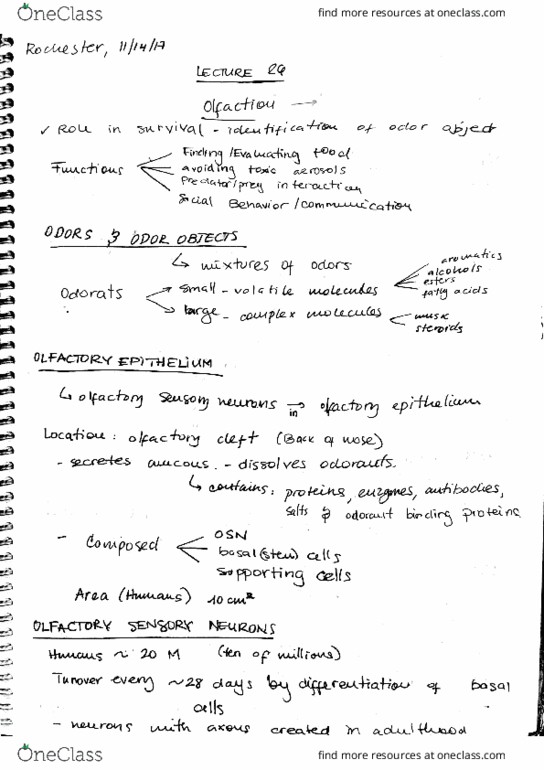 OneClass
find more resources at oneclass.com
Rochester, 11/14/17
LECTURE 24
Olfaction →
✓ Role in survival - identification of odor object
Functions
Finding/Evaluating food
avoiding toxic aerosols
Predator/prey interaction
Social Behavior/communication
ODORS & ODOR OBJECTS
↳ mixtures of odors
Odorats
small - volatile molecules
aromatics
alcohols
esters
fatty acids
large - complex molecules
musk
steroids
OLFACTORY EPITHELIUM
↳ olfactory sensory neurons → in olfactory epithelium
Location: olfactory cleft (Back of nose)
- secretes mucous. - dissolves odorants.
↳ contains: proteins, enzymes, antibodies,
salts & odorant binding proteins
- Composed
OSN
basal (stem) cells
supporting cells
Area (Humans) 10 cm²
OLFACTORY SENSORY NEURONS
Humans ~ 20 M (ten of millions)
Turnover every ~28 days by differentiation of basal
cells
- neurons with axons created in adulthood
OneClass
find more resources at oneclass.com